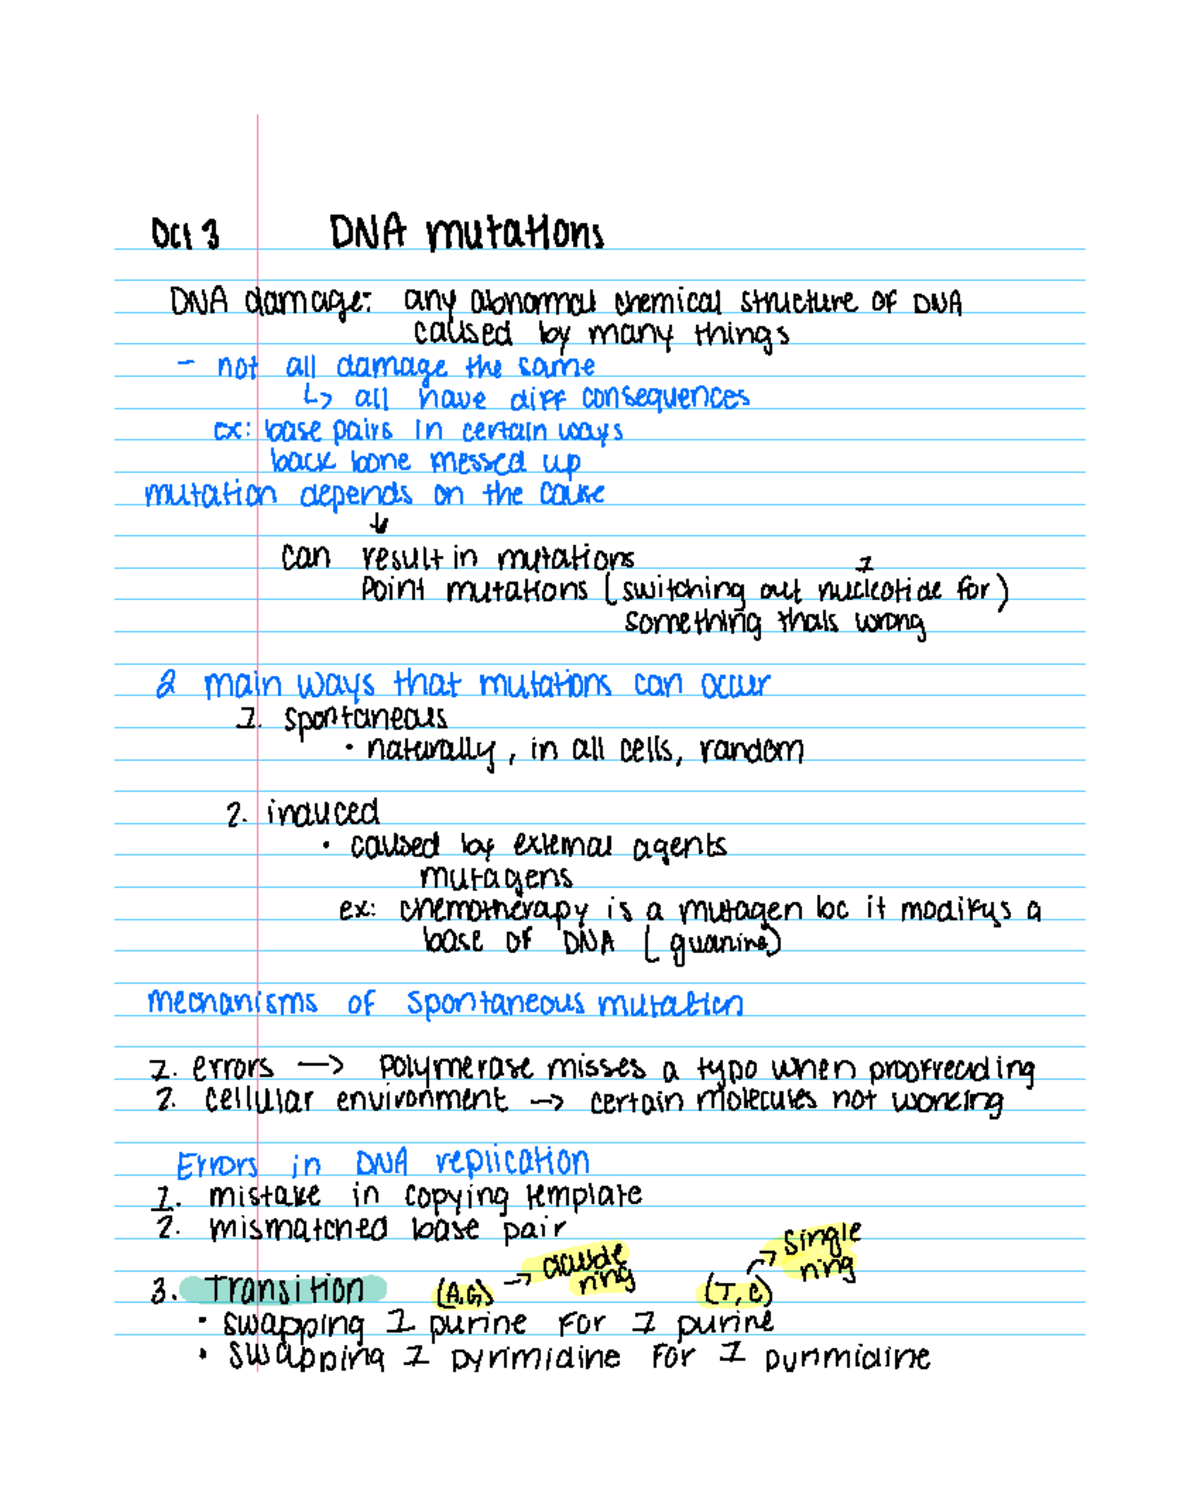 Oct 3 DNA mutations
DNA damage: any abnormal chemical structure of DNA
caused by many things
- not all damage the same
↳ all have diff consequences
ex: base pairs in certain ways
back bone messed up
mutation depends on the cause
↓
can result in mutations
1
Point mutations (switching out nucleotide for)
something thats wrong
2 main ways that mutations can occur
1. spontaneous
• naturally, in all cells, random
2. induced
• caused by external agents
mutagens
ex: chemotherapy is a mutagen bc it modifys a
base of DNA (guanine)
mechanisms of spontaneous mutation
1. errors → polymerase misses a typo when proofreading
2. cellular environment → certain molecules not working
Errors in DNA replication
1. mistake in copying template
2. mismatched base pair
3. Transition (A,G) → double ring (T, C) → single ring
• swapping 1 purine for 1 purine
• swapping 1 pyrimidine for 1 purimidine